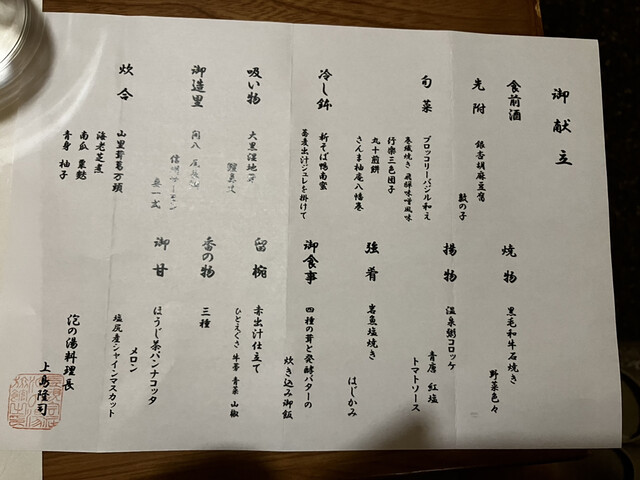 御献立
食前酒
先附
銀杏胡麻豆腐
数の子
旬菜
ブロッコリーバジル和え
巻繊焼き 飛騨味噌風味
行楽三色団子
丸十煎餅
さんま柚庵八幡巻
冷し鉢
新そば鴨南蛮
蕎麦出汁ジュレを掛けて
吸い物
大黒湿地茸
御造里
間八
信州サーモン
妻一式
炊合
山里茸葛万頭
海老芝煮
南瓜 粟麩
青身 柚子
焼物
黒毛和牛石焼き
野菜色々
揚物
温泉粥コロッケ
青唐 紅塩
トマトソース
強肴
岩魚塩焼き
はじかみ
御食事
四種の茸と発酵バターの
炊き込み御飯
留椀
赤出汁仕立て
ひとえぐさ 牛蒡 青菜 山椒
香の物
三種
御甘
ほうじ茶パンナコッタ
メロン
塩尻産シャインマスカット
泡の湯料理長
上島隆司